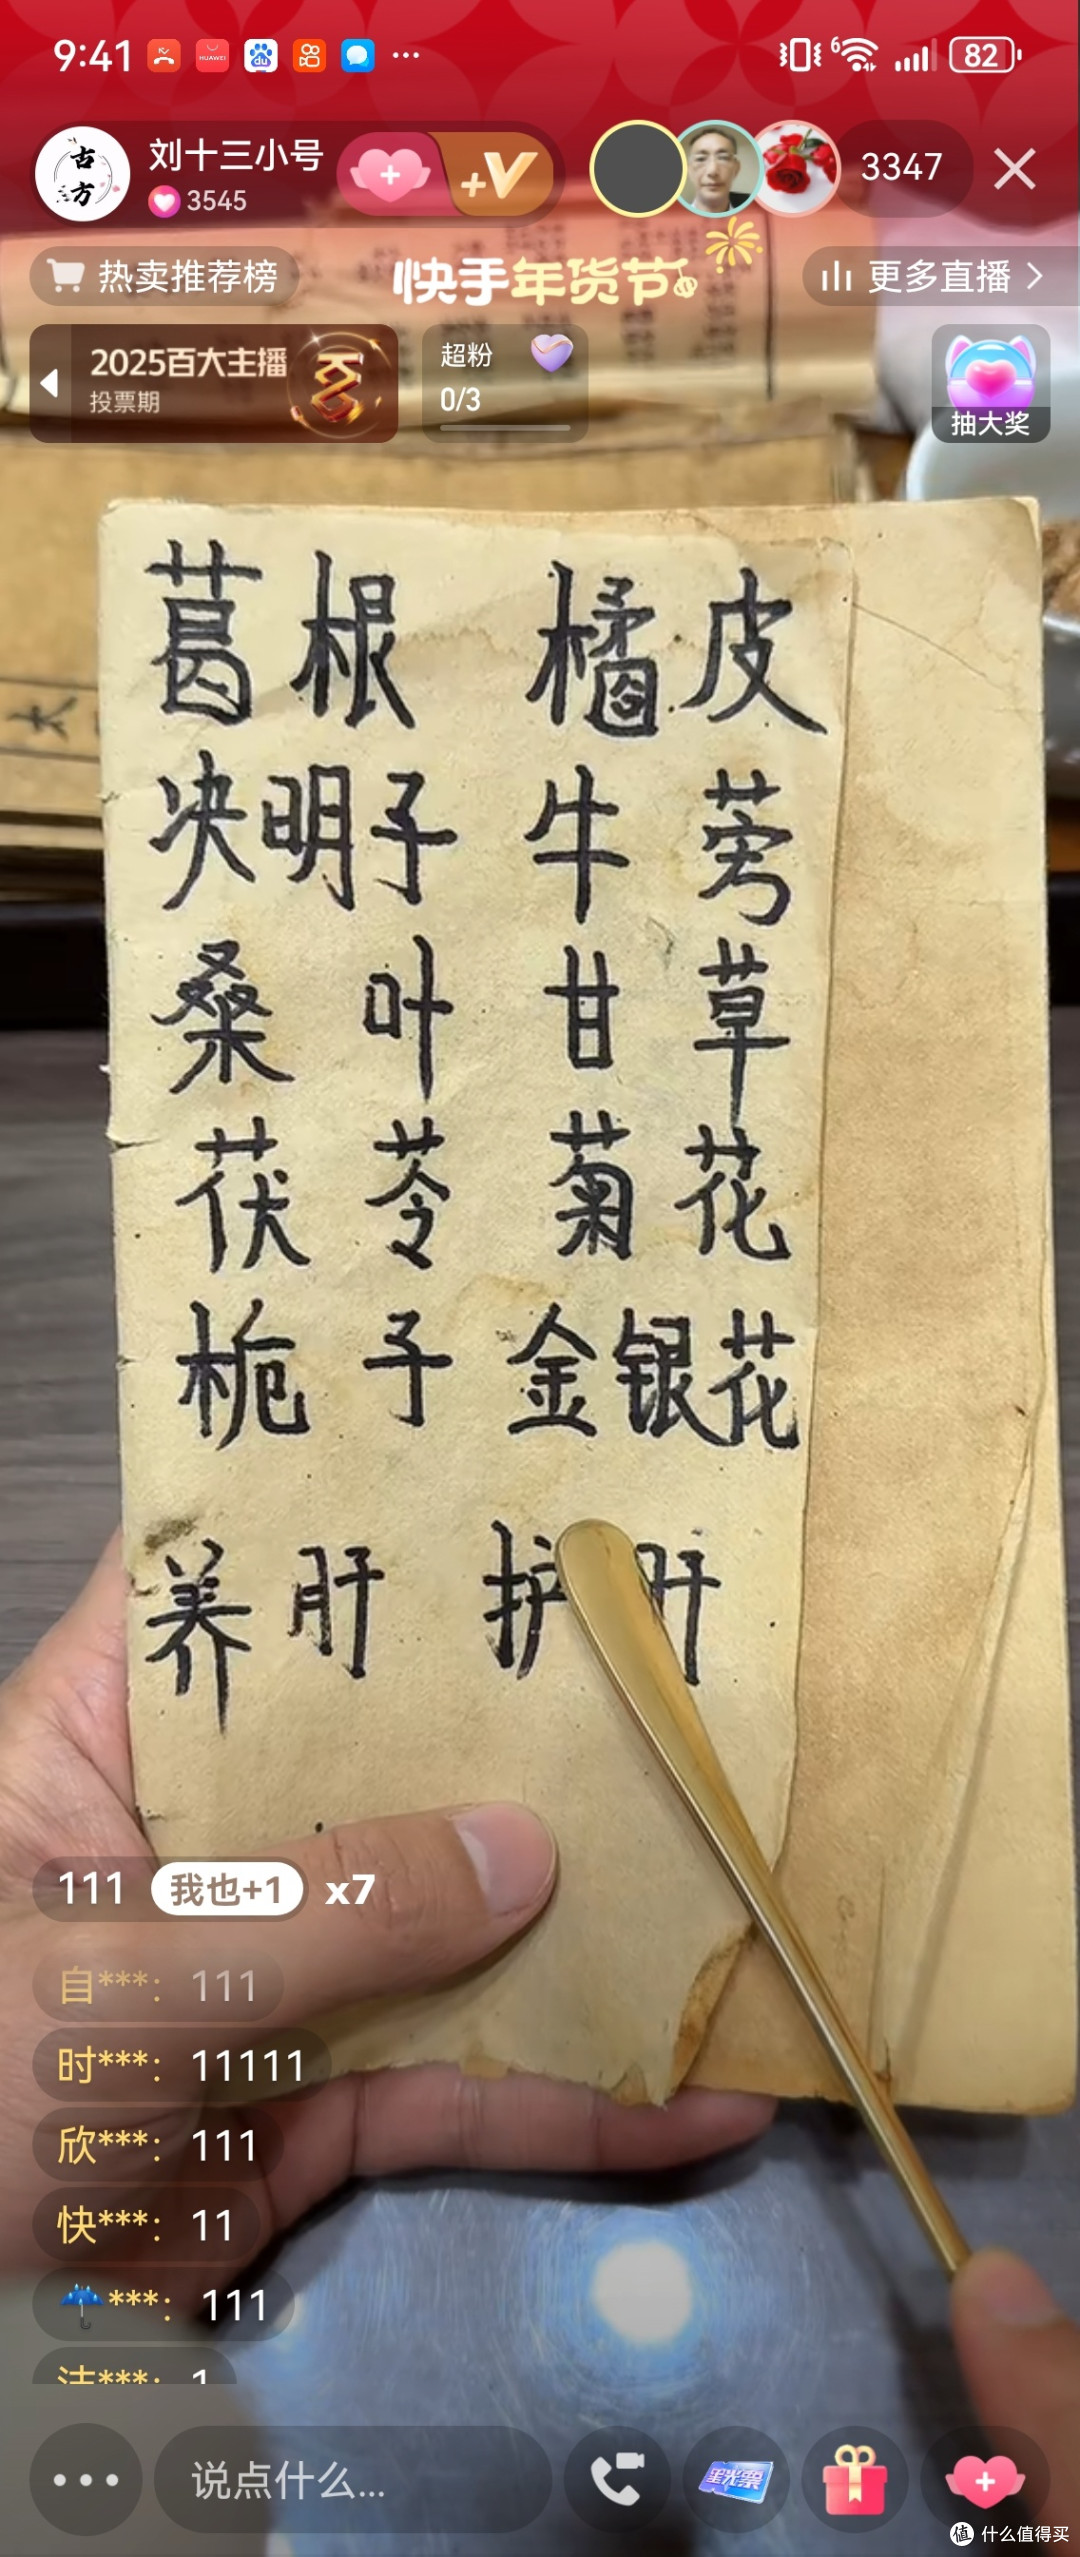 9:41 HUAWEI du 6 82
古方 刘十三小号 3545 +V 3347
热卖推荐榜 快手年货节 更多直播
2025百大主播 超粉
投票期 0/3 抽大奖
葛根 橘皮
决明子 牛蒡
桑叶 甘草
茯苓 菊花
栀子 金银花
养肝 护肝
111 我也+1 x7
自***： 111
时***： 11111
欣***： 111
快***： 11
***： 111
洁***： 1
说点什么... 星光票
值 什么值得买